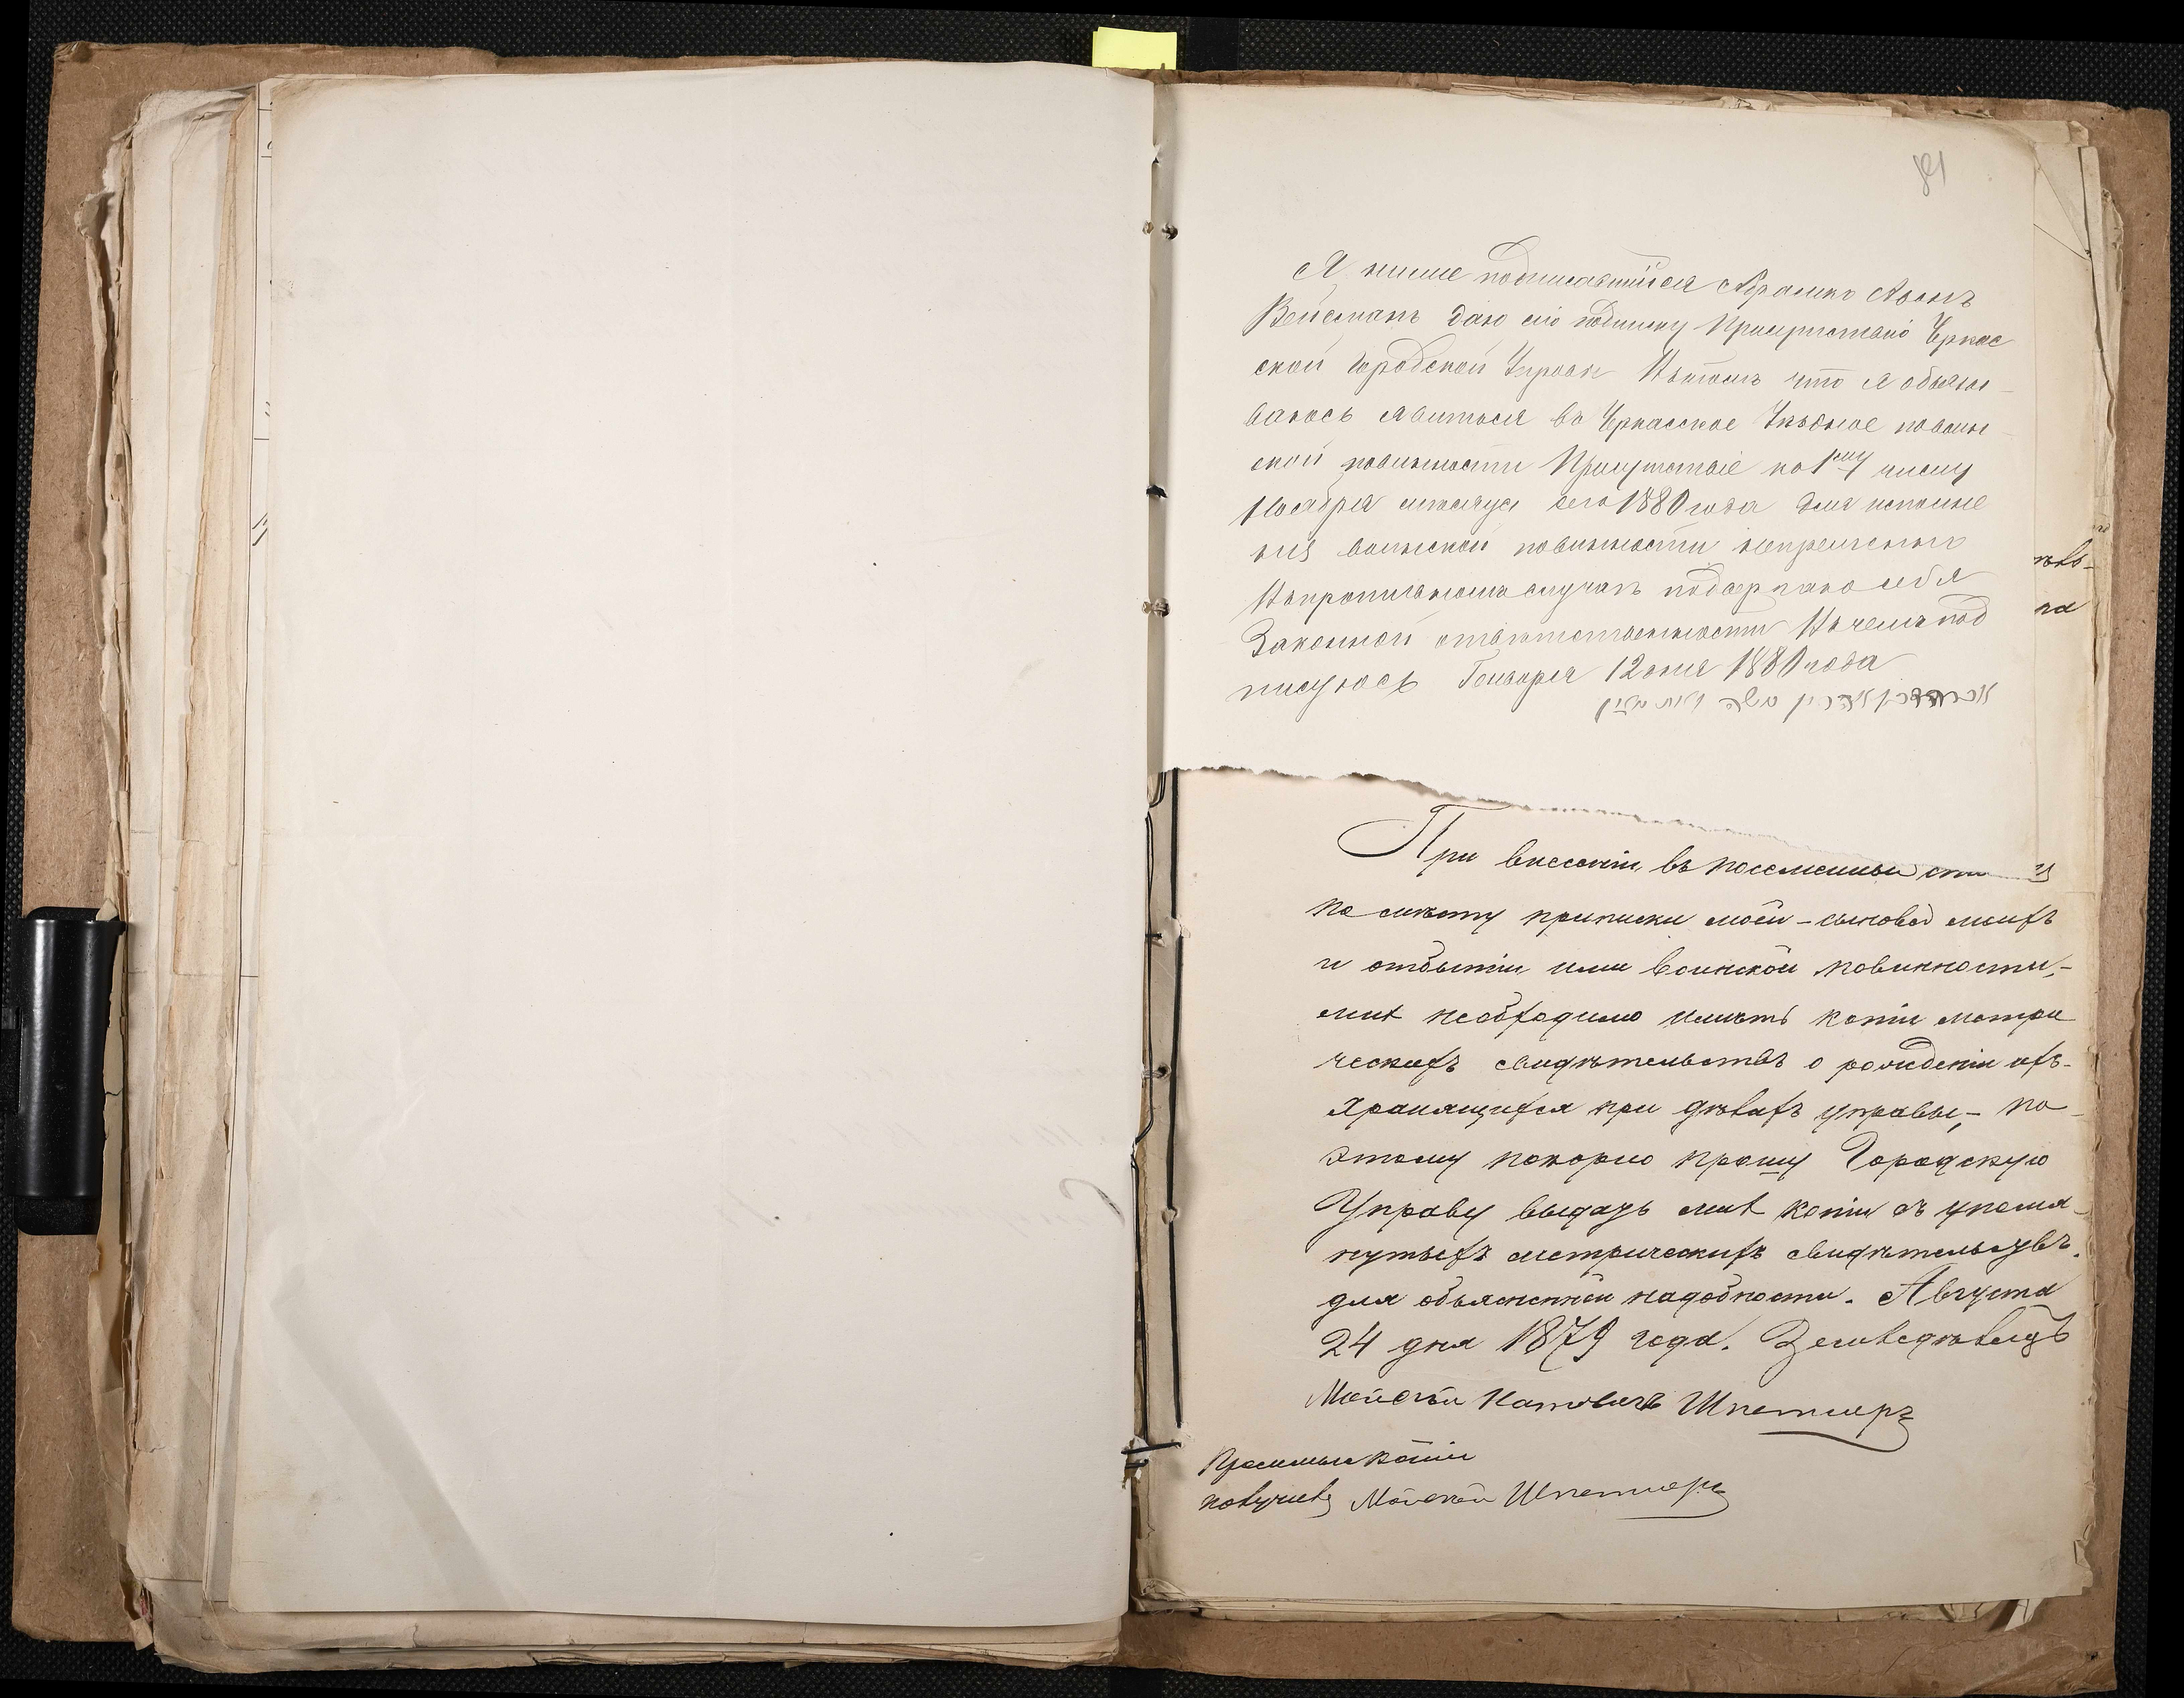 81
Я ниже подписавшійся Абрамко Аронъ
Вейсманъ даю сію подписку Присутствію Черкас
ской Городской Управы Въ томъ что я обязы-
ваюсь явиться въ Черкасское Уѣздное по воин-
ской повинности Присутствіе къ 1му числу
Ноября мѣсяца сего 1880 года для исполне
нія воинской повинности непремѣнно
Въ противномъ случаѣ подвергаю себя
Законной отвѣтственности Въ чемъ под
писуюсь Генваря 12 дня 1880 года
משה
При внесеніи въ посемейный
по мѣсту приписки моей - сыновей моихъ
и отбытіи ими воинской повинности,-
мнѣ необходимо имѣть копіи метри
ческихъ свидѣтельствъ о рожденіи ихъ-
хранящихся при дѣлахъ управы,- по-
этому покорно прошу Городскую
Управу выдать мнѣ копіи съ упомя-
нутыхъ метрическихъ свидѣтельствъ.
для объясненной надобности. Августа
24 дня 1879 года. Землевладѣлецъ
Мойсѣй Шпетнеръ
Просимыя копіи
получилъ Мойсей Шпетнеръ